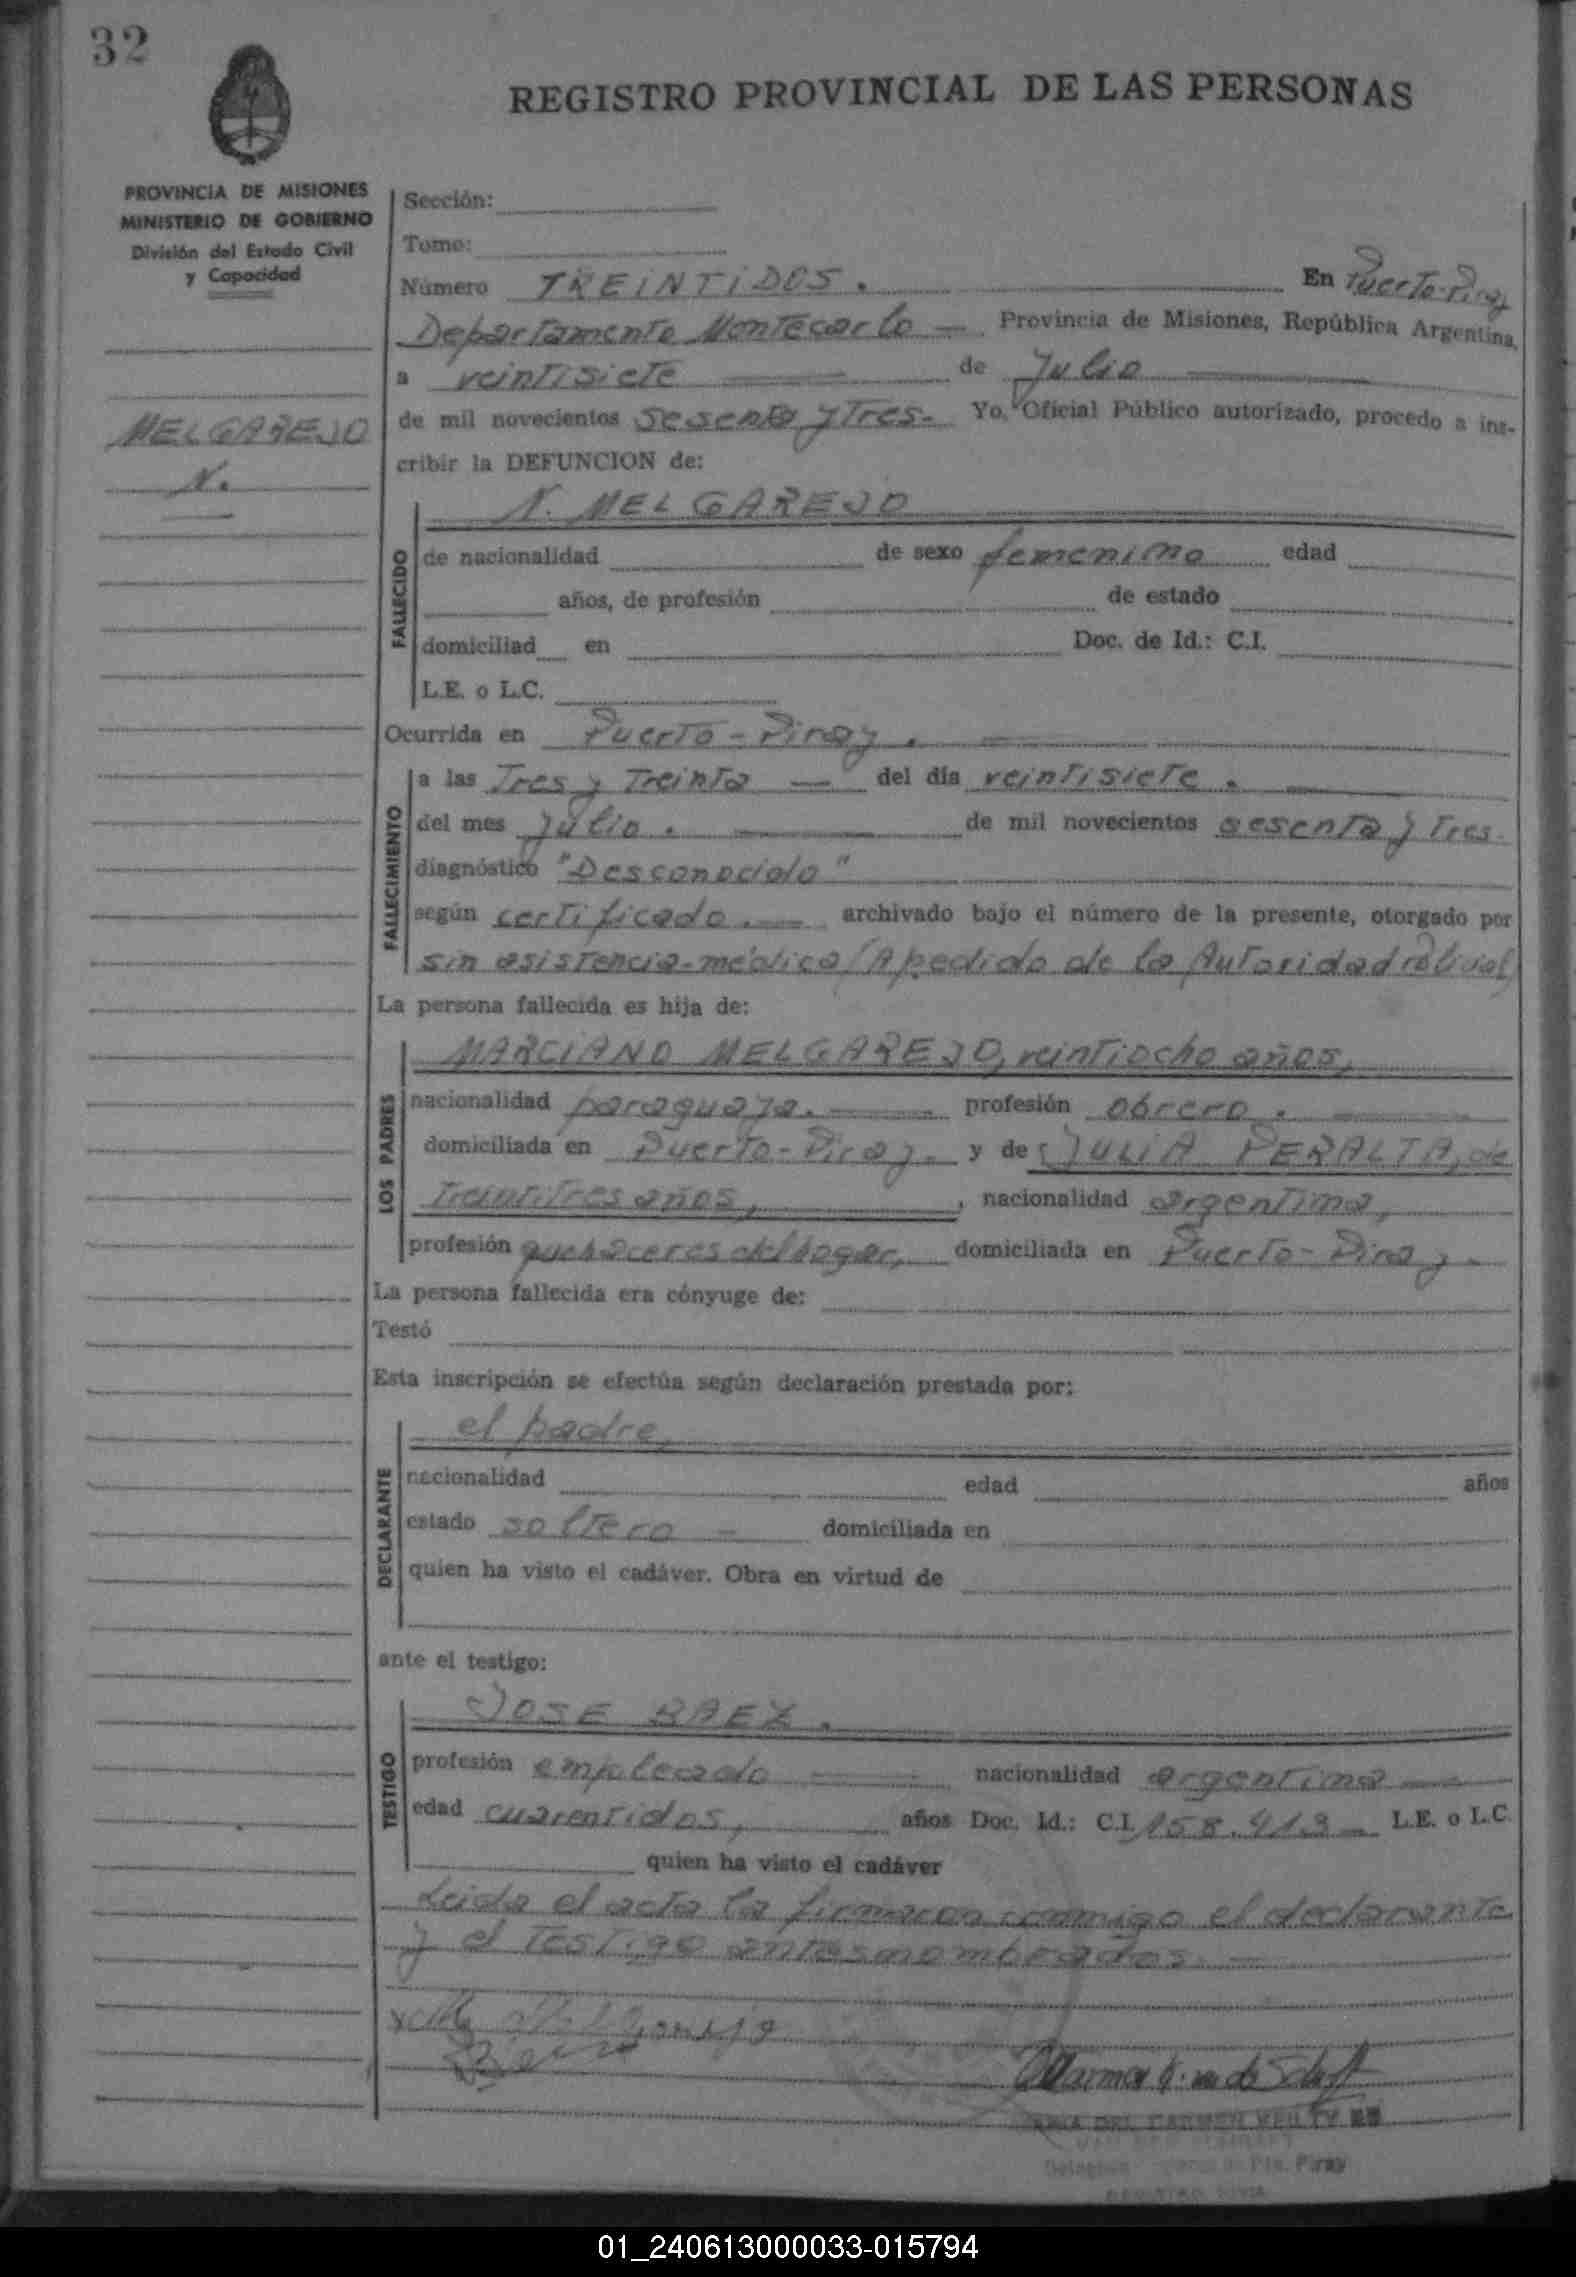 32
REGISTRO PROVINCIAL DE LAS PERSONAS
PROVINCIA DE MISIONES
MINISTERIO DE GOBIERNO
División del Estado Civil
y Capacidad
MELGAREJO
N.
Sección:
Tomo:
Número TREINTIDOS. En Puerto-Piray
Departamento Montecarlo — Provincia de Misiones, República Argentina,
a veintisiete de Julio
de mil novecientos sesenta y Tres- Yo, Oficial Público autorizado, procedo a ins-
cribir la DEFUNCION de:
N. MELGAREJO
FALLECIDO
de nacionalidad de sexo femenino edad
años, de profesión de estado
domiciliad en Doc. de Id.: C.I.
L.E. o L.C.
Ocurrida en Puerto-Piray.
FALLECIMIENTO
a las Tres y Treinta — del día veintisiete.
del mes Julio. de mil novecientos sesenta y Tres-
diagnóstico "Desconocido"
según certificado.— archivado bajo el número de la presente, otorgado por
sin asistencia-médica (A pedido de la Autoridad Policial)
La persona fallecida es hija de:
LOS PADRES
MARCIANO MELGAREJO, veintiocho años,
nacionalidad paraguaya. profesión obrero.
domiciliada en Puerto-Piray. y de JULIA PERALTA, de
Treintitres años, , nacionalidad argentina,
profesión quehaceres del hogar, domiciliada en Puerto-Piray.
La persona fallecida era cónyuge de:
Testó
Esta inscripción se efectúa según declaración prestada por:
DECLARANTE
el padre,
nacionalidad edad años
estado soltero - domiciliada en
quien ha visto el cadáver. Obra en virtud de
ante el testigo:
TESTIGO
JOSE BAEZ.
profesión empleado nacionalidad argentina
edad cuarentidos, años Doc. Id.: C.I. 158.413 — L.E. o L.C.
quien ha visto el cadáver
Leida el acta la firmaron conmigo el declarante
y el Testigo antesnombrados. —
DEL CARMEN
Pto. Piray
01_240613000033-015794